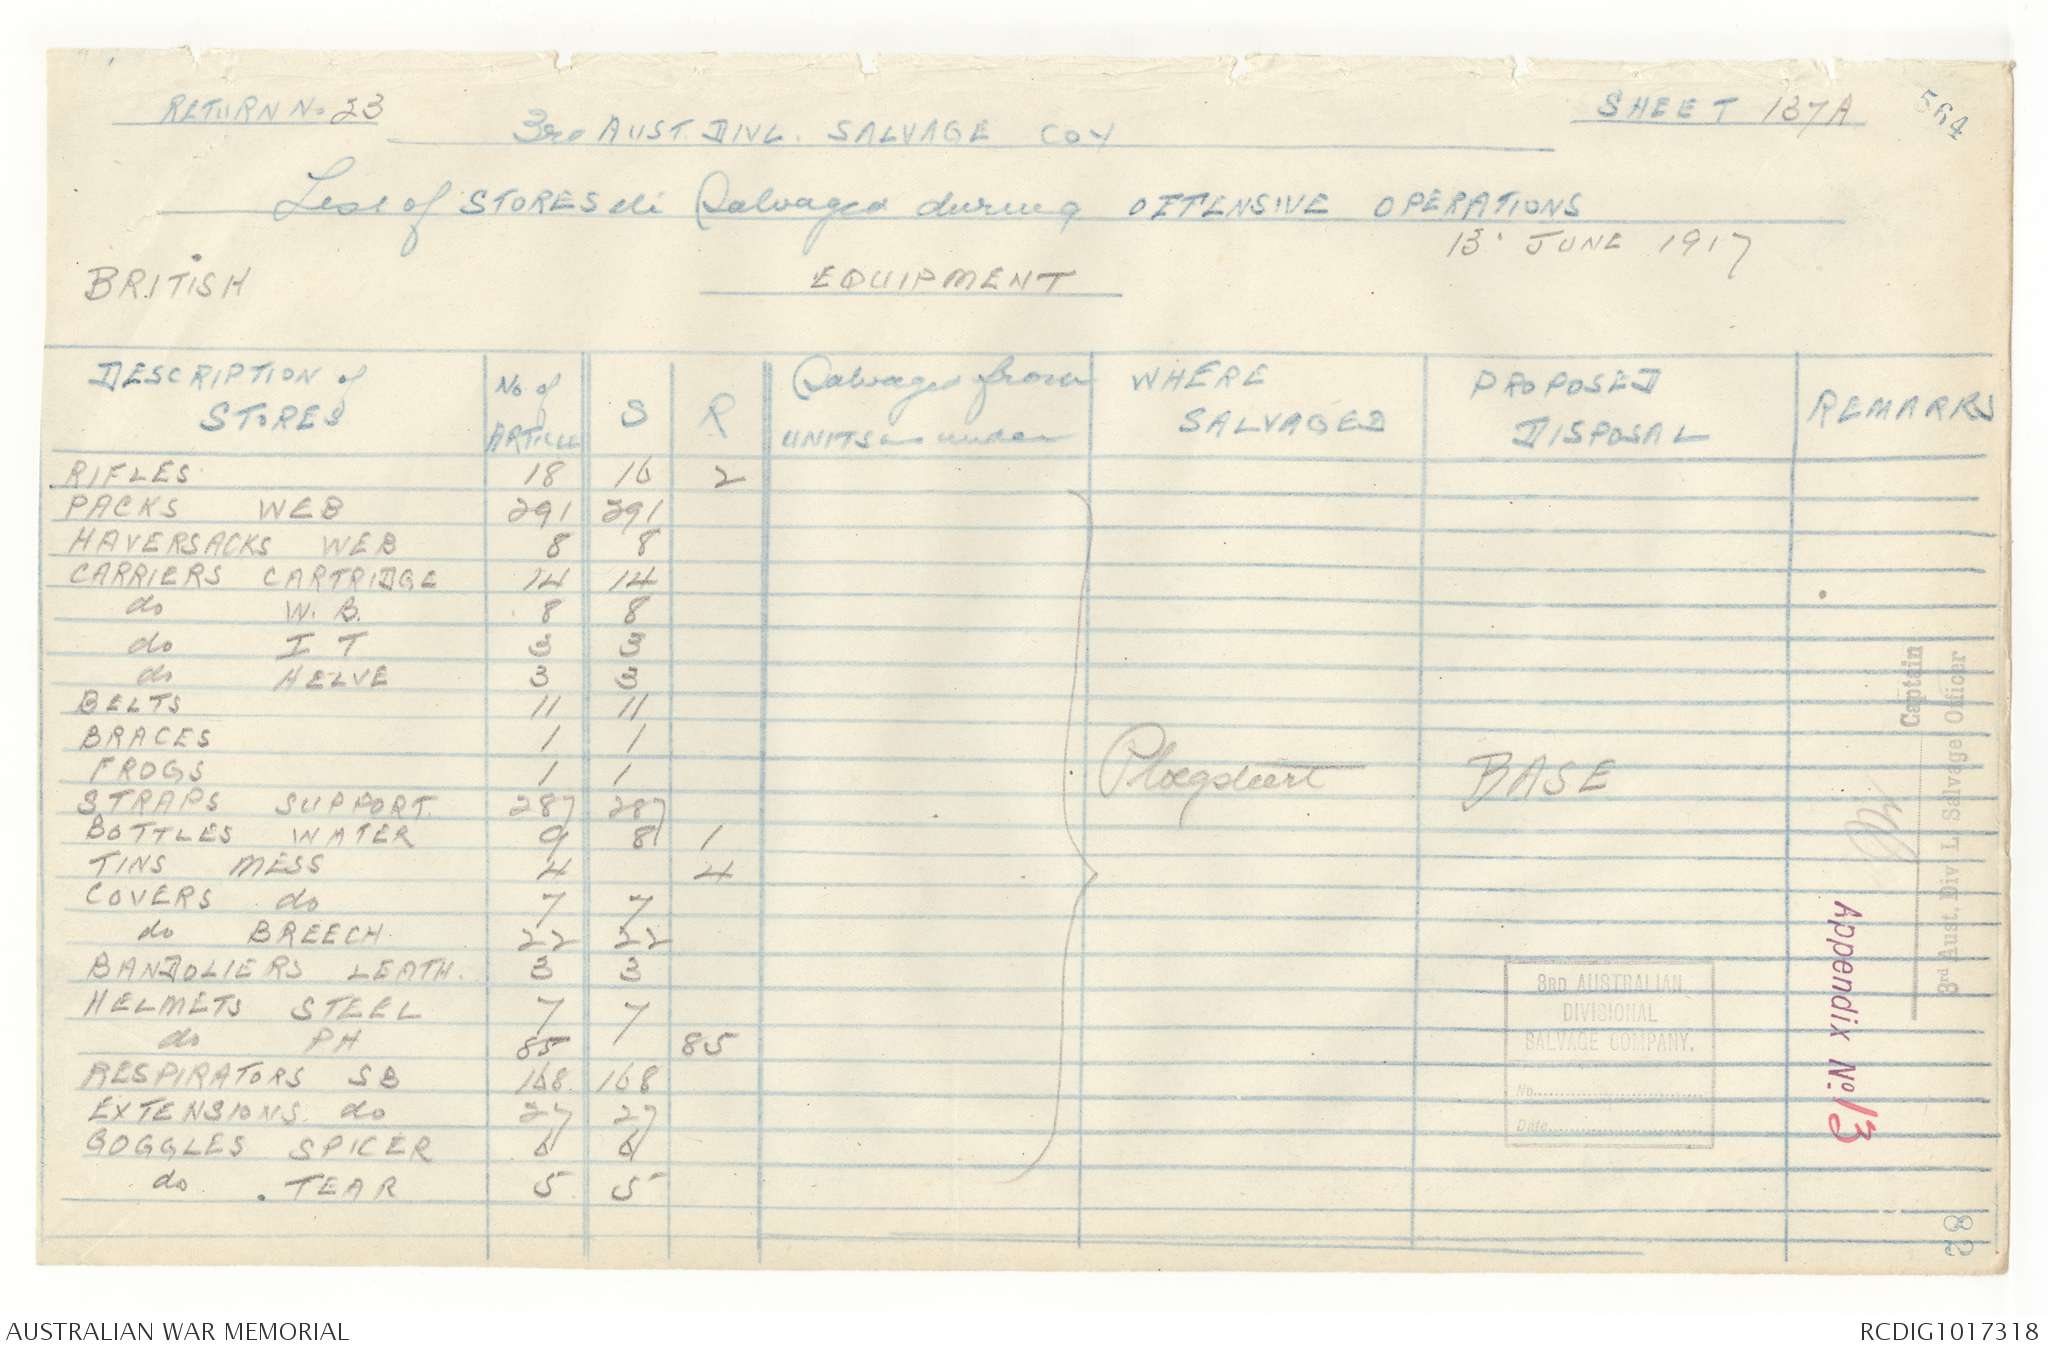 RETURN No. 23
SHEET 137A
564
3RD AUST. DIVL. SALVAGE COY
List of STORES etc Salvaged during OFFENSIVE OPERATIONS
13 JUNE 1917
BRITISH
EQUIPMENT
DESCRIPTION of STORES No. of ARTICLE S R Salvaged from UNITS as under WHERE SALVAGED PROPOSED DISPOSAL REMARKS
RIFLES 18 16 2
PACKS WEB 291 291
HAVERSACKS WEB 8 8
CARRIERS CARTRIDGE 14 14
do W.B. 8 8
do I T 3 3
do HELVE 3 3
BELTS 11 11
BRACES 1 1
FROGS 1 1
Ploegsteert BASE
STRAPS SUPPORT. 287 287
BOTTLES WATER 9 8 1
TINS MESS 4 4
COVERS do 7 7
do BREECH 22 22
BANDOLIERS LEATH. 3 3
HELMETS STEEL 7 7
do PH 85 85
RESPIRATORS SB 168 168
EXTENSIONS do 27 27
GOGGLES SPICER 6 6
do TEAR 5 5
Captain
3rd Aust. Div'l. Salvage Officer
Appendix No. 13
3RD AUSTRALIAN
DIVISIONAL
SALVAGE COMPANY.
No.
Date
82
AUSTRALIAN WAR MEMORIAL
RCDIG1017318